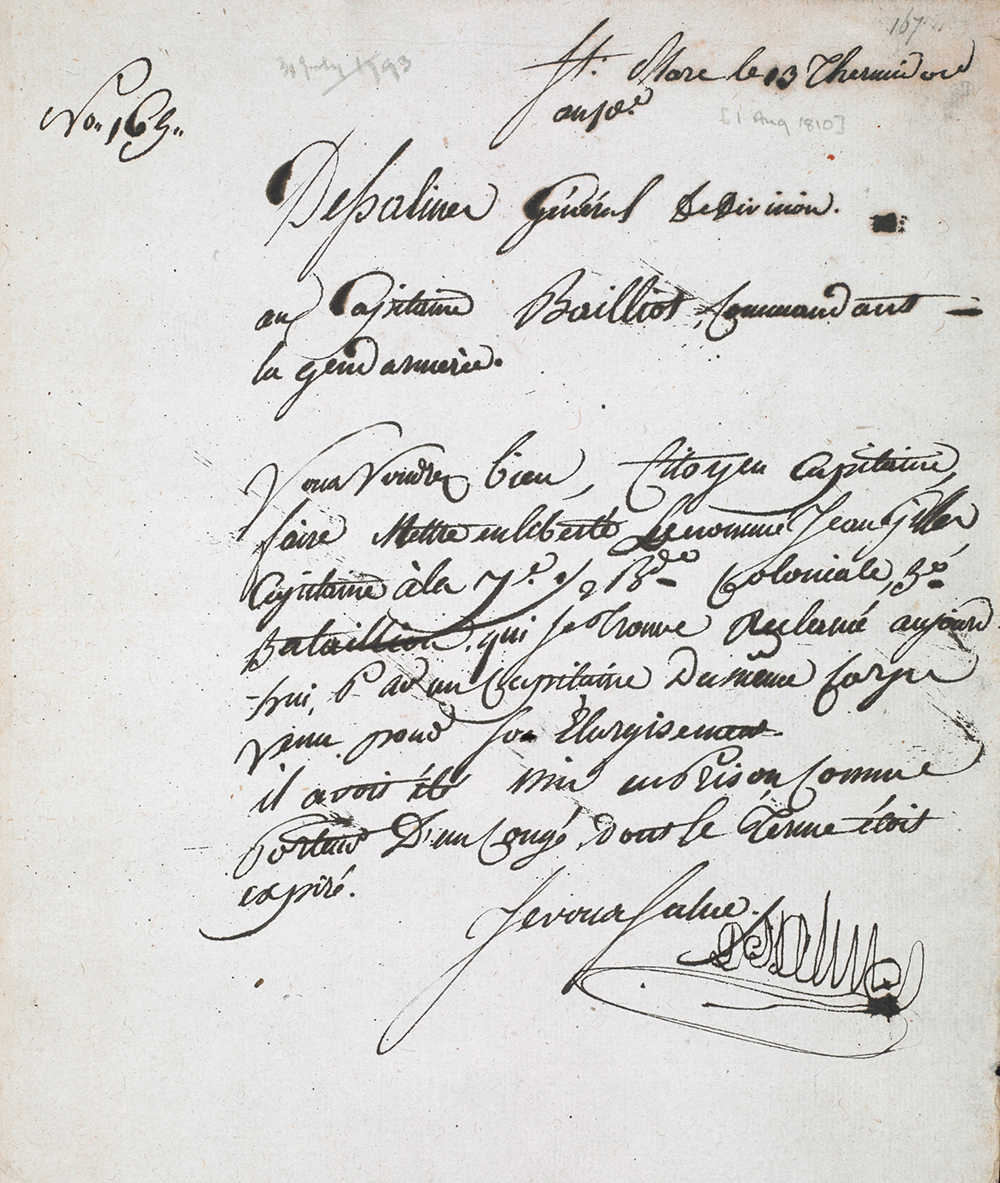 167
30 July 1793
St. Marc le 13 Thermidor
an 10e
[1 Aug 1810]
No. 169.
Dessalines Général De Division.
au Capitaine Bailliot, Commandant
la gendarmerie.
Vous Voudrez bien, Citoyen Capitaine,
faire Mettre en liberté Le nommé Jean Gilles
Capitaine à la 7e. 1/2 Bde Coloniale, 3e
Bataillion, qui se trouve Reclamé aujourd
hui, Par un Capitaine Du même Corps
venu pour son Élargisement.
il avoit été mis en Prison Comme
Porteur D'un Congé dont le Terme étoit
expiré.
Je vous salue.
Dessalines